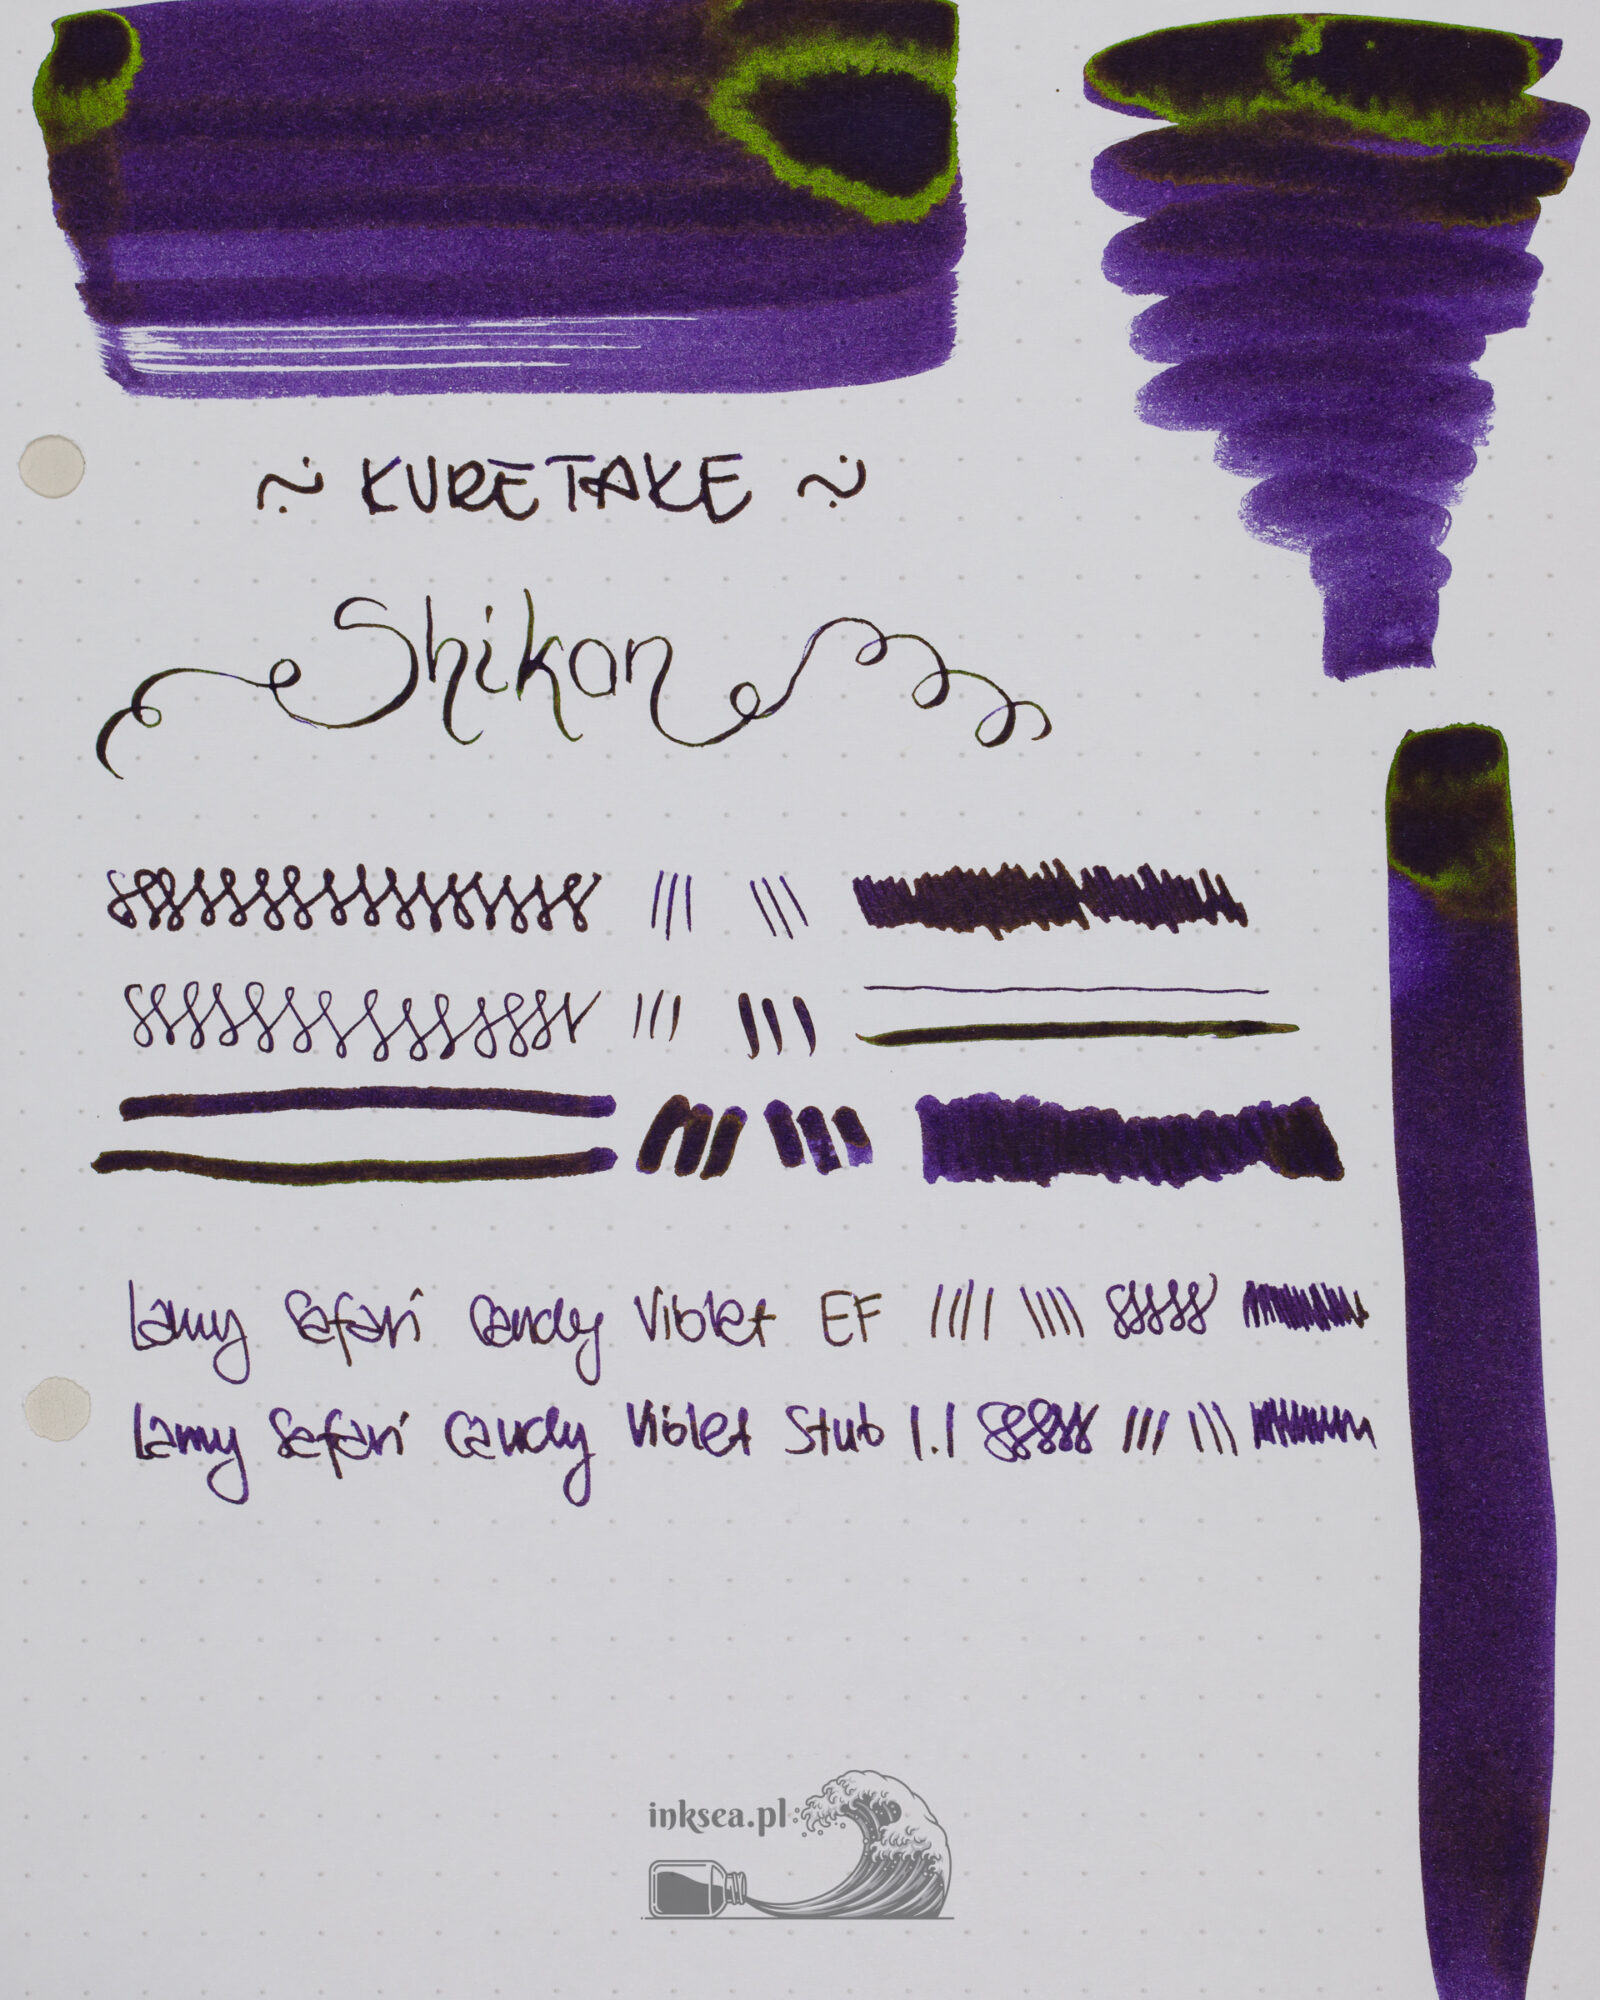 ~ KURETAKE ~
Shikon
Lamy Safari Candy Violet EF
Lamy Safari Candy Violet Stub 1.1
inksea.pl